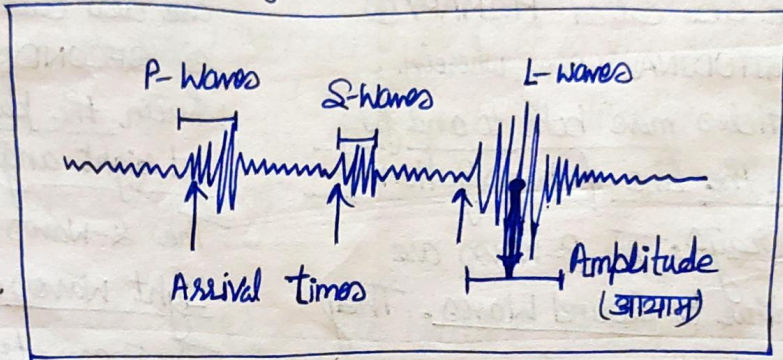 P-Waves
S-Waves
L-waves
Arrival times
Amplitude
(आयाम)